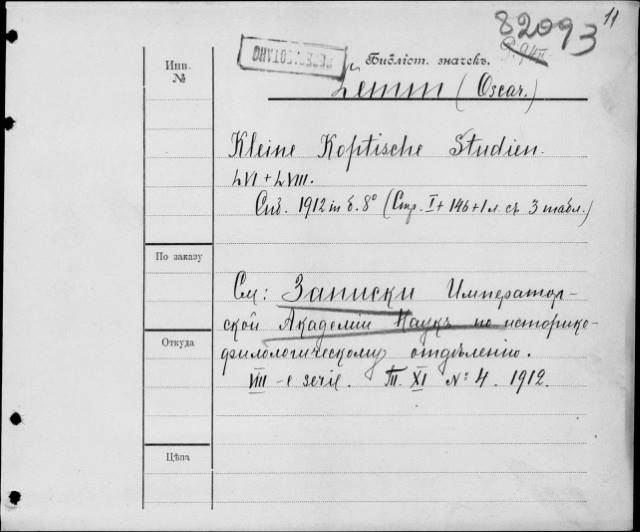 11
82093
Инв.
№
ПЕРЕРАБОТАНО
Библіот. значекъ.
Lemm (Oscar.)
Kleine Koptische Studien.
LVI + LVIII.
Спб. 1912 in б. 8° (Стр. I + 146 + 1 л. съ 3 табл.)
По заказу
См: Записки Император-
ской Академіи Наукъ по историко-
Откуда
филологическому отдѣленію.
VIII-е serie. Т. XI № 4. 1912.
Цѣна